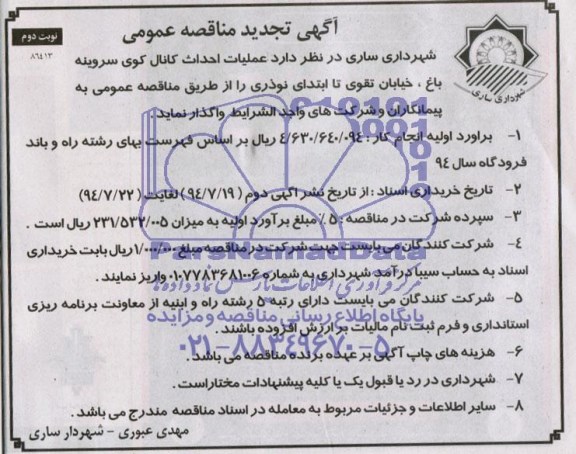 آگهی تجدید مناقصه عمومی
نوبت دوم
۸۶۴۱۳
شهرداری ساری
شهرداری ساری در نظر دارد عملیات احداث کانال کوی سروینه
باغ ، خیابان تقوی تا ابتدای نوذری را از طریق مناقصه عمومی به
پیمانکاران و شرکت های واجد الشرایط واگذار نماید .
۱- براورد اولیه انجام کار : ۴/۶۳۰/۶۴۰/۰۹۴ ریال بر اساس فهرست بهای رشته راه و باند
فرودگاه سال ۹۴
۲- تاریخ خریداری اسناد : از تاریخ نشر اگهی دوم ( ۹۴/۷/۱۹ ) لغایت ( ۹۴/۷/۲۲ )
۳- سپرده شرکت در مناقصه : ۵٪ مبلغ برآورد اولیه به میزان ۲۳۱/۵۳۲/۰۰۵ ریال است .
۴- شرکت کنندگان می بایست جهت شرکت در مناقصه مبلغ ۱/۰۰۰/۰۰۰ ریال بابت خریداری
اسناد به حساب سیبا درآمد شهرداری به شماره ۰۱۰۷۷۸۳۶۸۱۰۰۶ واریز نمایند .
۵- شرکت کنندگان می بایست دارای رتبه ۵ رشته راه و ابنیه از معاونت برنامه ریزی
استانداری و فرم ثبت نام مالیات بر ارزش افزوده باشند .
۶- هزینه های چاپ آگهی بر عهده برنده مناقصه می باشد .
۷- شهرداری در رد یا قبول یک یا کلیه پیشنهادات مختاراست .
۸- سایر اطلاعات و جزئیات مربوط به معامله در اسناد مناقصه مندرج می باشد .
مهدی عبوری - شهردار ساری
ParsNamadData
مرکز فرآوری اطلاعات پارس نماد داده ها
پایگاه اطلاع رسانی مناقصه و مزایده
۰۲۱-۸۸۳۴۹۶۷۰-۵